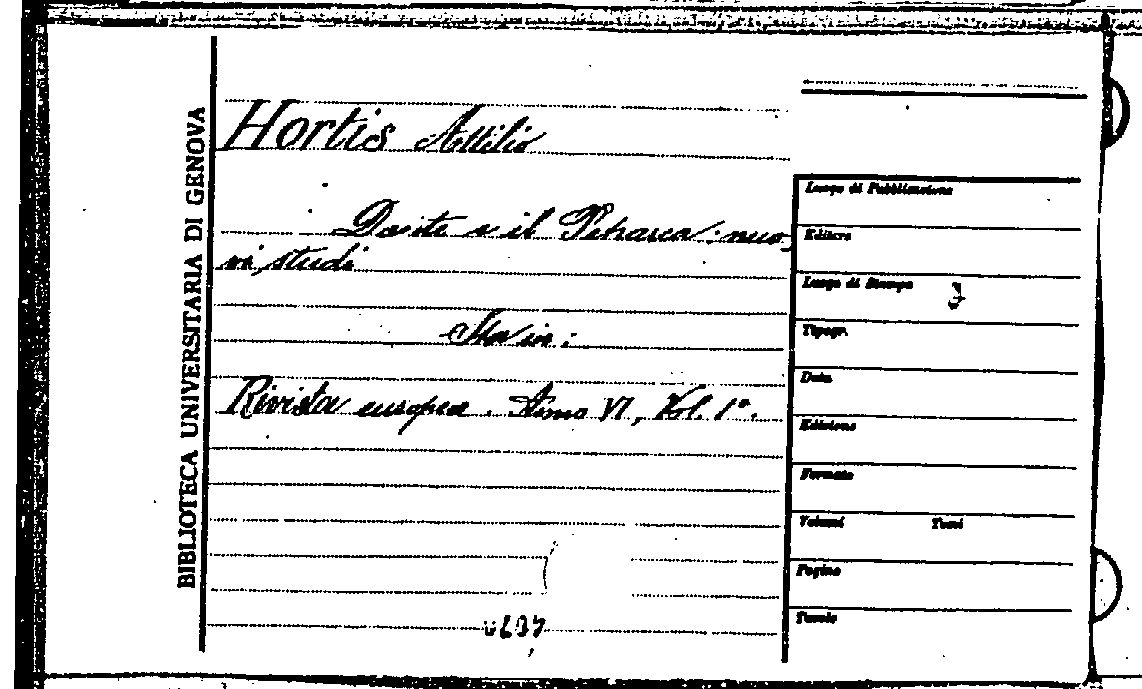 BIBLIOTECA UNIVERSITARIA DI GENOVA
Hortis Attilio
Dante e il Petrarca: nuo-
vi studi
Rivista europea. Anno VI, Vol. 1°.
Luogo di Pubblicazione
Editore
Luogo di Stampa
Tipogr.
Data
Edizione
Formato
Volumi Tomi
Pagine
Tavole